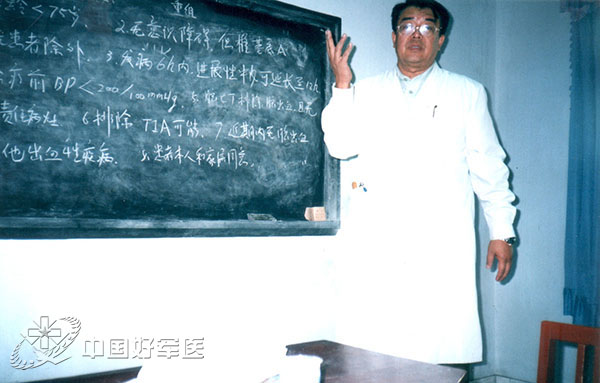 重组
龄<75岁
2.无意识障碍,但椎基底A
患者除外. 3.发病6h内,进展性卒中可延长至12h
疗前BP<200/100mmHg. 5.脑CT排除脑出血,且无
责任病灶 6.排除TIA可能. 7.近期内无脑出血
他出血性疾病. 8.患者本人和家属同意.
中国好军医